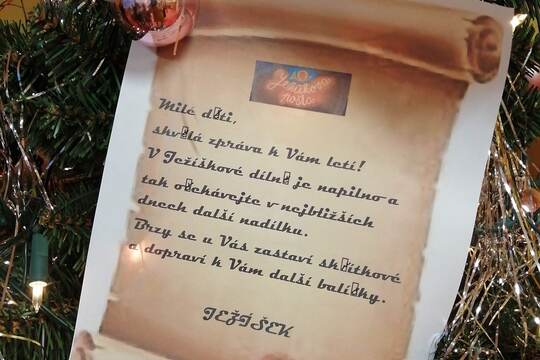 Ježíškova
pošta
Milé d▯ti,
skv▯lá zpráva k Vám letí!
V Ježíškové díln▯ je napilno a
tak o▯ekávejte v nejbližších
dnech další nadílku.
Brzy se u Vás zastaví sk▯ítkové
a dopraví k Vám další balí▯ky.
JEŽÍŠEK